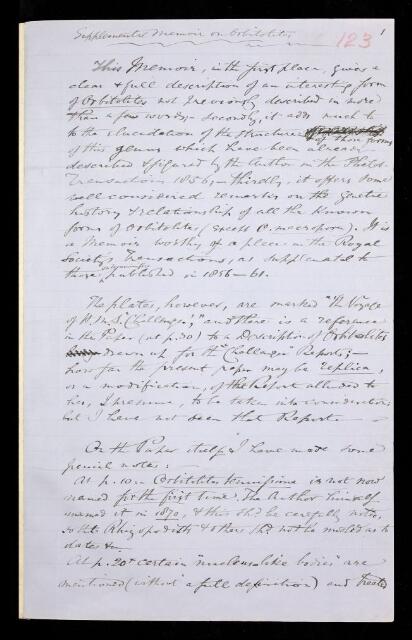 Supplemental Memoir on Orbitolites
1
123
This Memoir, in the first place, gives a
clear & full description of an interesting form
of Orbitolites not previously described in more
than a few words; – secondly, it adds much to
to the elucidation of the structures of those forms
of this genus which have been already
described & figured by the Author in the Philos.
Transactions 1856; – thirdly, it offers some
well-considered remarks on the genetic
history & relationship of all the known
forms of Orbitolites (except O. macropora). It is
a Memoir worthy of a place in the Royal
Society's Transactions, as supplemental to
those published in 1856–61.
The plates, however, are marked "The Voyage
of H.M.S. Challenger," and there is a reference
in the Paper (at p. 30) to a Description of Orbitolites
drawn up for the "Challenger" Reports; –
how far the present paper may be replica,
or a modification, of the Report alluded to
has, I presume, to be taken into consideration;
but I have not seen that Report. –
On the Paper itself I have made some
pencil notes: –
At p. 10 – Orbitolites tenuissima is not now
named for the first time. The Author himself
named it in 1870, & this shd be carefully noted,
so that Rhizopodists & others shd not be misled as to
dates &c.
At p. 20 + certain "nucleus-like bodies" are
mentioned (without a full definition) and treated